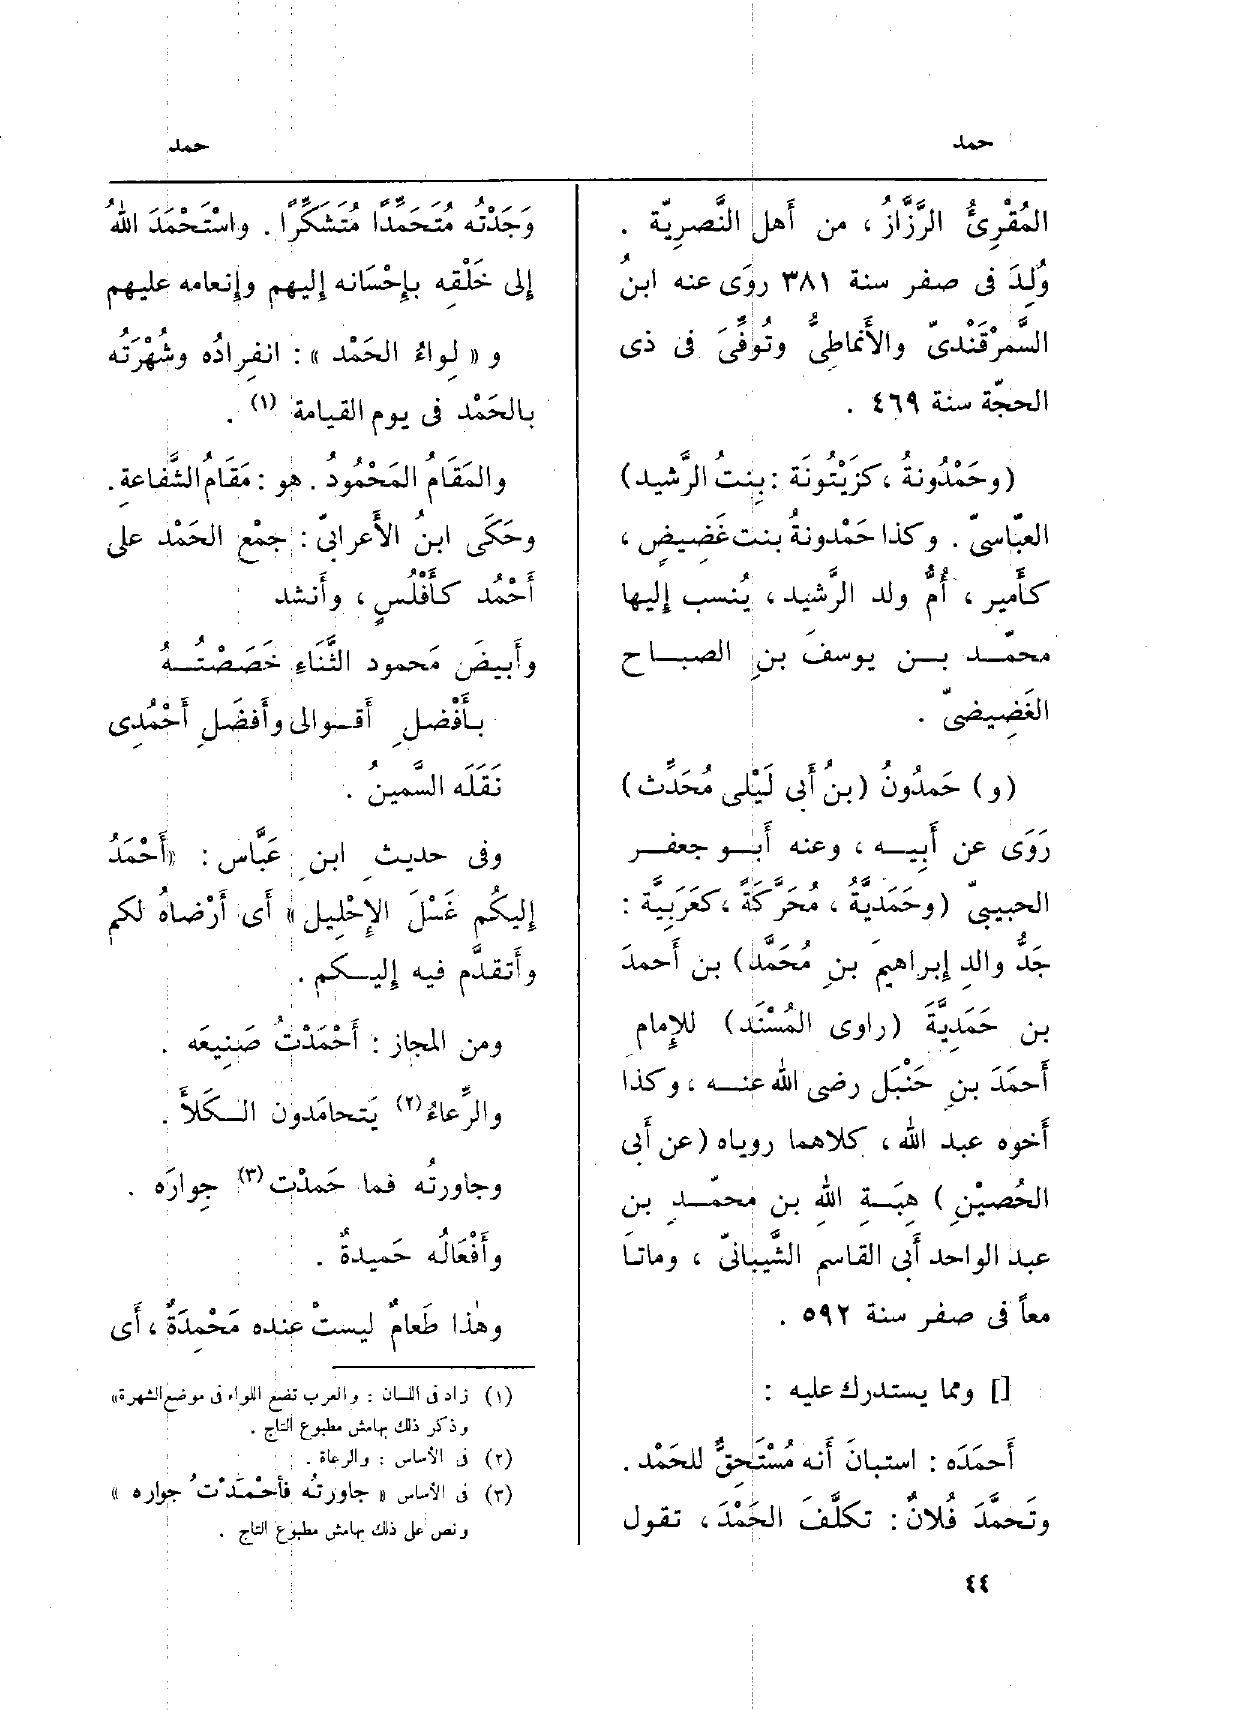 حمد
حمد
المُقْرِئُ الرَّزَّازُ ، من أَهل النَّصرِيّة .
وُلِدَ فى صفر سنة ٣٨١ روَى عنه ابنُ
السَّمرْقَندىّ والأَنماطىُّ وتُوفِّىَ فى ذى
الحجّة سنة ٤٦٩ .
(وحَمْدُونةُ ، كزَيْتُونَة : بِنتُ الرَّشيد)
العبّاسىّ . وكذا حَمْدونةُ بنت غَضِيضٍ ،
كأَمير ، أُمُّ ولد الرَّشيد ، يُنسب إليها
محمّد بن يوسفَ بنِ الصباح
الغَضِيضىّ .
(و) حَمدُونُ (بنُ أَبى لَيْلى مُحَدِّث)
رَوَى عن أَبِيه ، وعنه أَبو جعفر
الحبيبىّ (وحَمَدِيَّةُ ، مُحَرَّكَةً ، كعَرَبِيَّة :
جَدُّ والدِ إبراهيمَ بنِ مُحَمَّد) بن أَحمدَ
بن حَمَدِيَّةَ (راوى المُسْنَد) للإِمام
أَحمَدَ بنِ حَنْبَل رضى الله عنه ، وكذا
أَخوه عبد الله ، كلاهما روياه (عن أَبى
الحُصيْنِ) هِبَةِ الله بن محمّد بن
عبد الواحد أَبى القاسم الشَّيبانىّ ، وماتَا
معاً فى صفر سنة ٥٩٢ .
[] ومما يستدرك عليه :
أَحمَدَه : استبانَ أَنه مُسْتَحِقٌّ للحَمْد .
وتَحمَّدَ فُلانٌ : تكلَّفَ الحَمْدَ ، تقول
وَجَدْتُه مُتَحَمِّدًا مُتَشكِّرًا . واسْتَحْمَدَ اللهُ
إلى خَلْقِه بإِحْسَانه إليهم وإنعامه عليهم
و « لِواءُ الحَمْد » : انفِرادُه وشُهْرَتُه
بالحَمْد فى يوم القيامة (١) .
والمَقَامُ المَحْمُودُ . هو : مَقَامُ الشَّفاعةِ .
وحَكَى ابنُ الأَعرابىّ : جمْع الحَمْد على
أَحْمُد كأَفْلُسٍ ، وأَنشد
وأَبيضَ مَحمود الثَّنَاءِ خَصَصْتُهُ
بأَفْضلِ أَقوالى وأَفضَلِ أَحْمُدِى
نَقَلَه السَّمينُ .
وفى حديثِ ابنِ عَبَّاس : «أَحْمَدُ
إليكُم غَسْلَ الإِحْليل» أَى أَرْضاهُ لكم
وأَتقدَّم فيه إليكم .
ومن المجاز : أَحْمَدْتُ صَنِيعَه .
والرِّعاءُ (٢) يَتحامَدون الكَلأَ .
وجاورتُه فما حَمدْت (٣) جِوارَه .
وأَفْعَالُه حَميدةٌ .
وهٰذا طَعامٌ ليستْ عنده مَحْمِدَةٌ ، أَى
(١) زاد فى اللسان : والعرب تضع اللواء فى موضع الشهرة»
وذكر ذلك بهامش مطبوع التاج .
(٢) فى الأساس : والرعاة .
(٣) فى الأساس « جاورتُه فأحْمَدْت ُ جواره »
ونص على ذلك بهامش مطبوع التاج .
٤٤